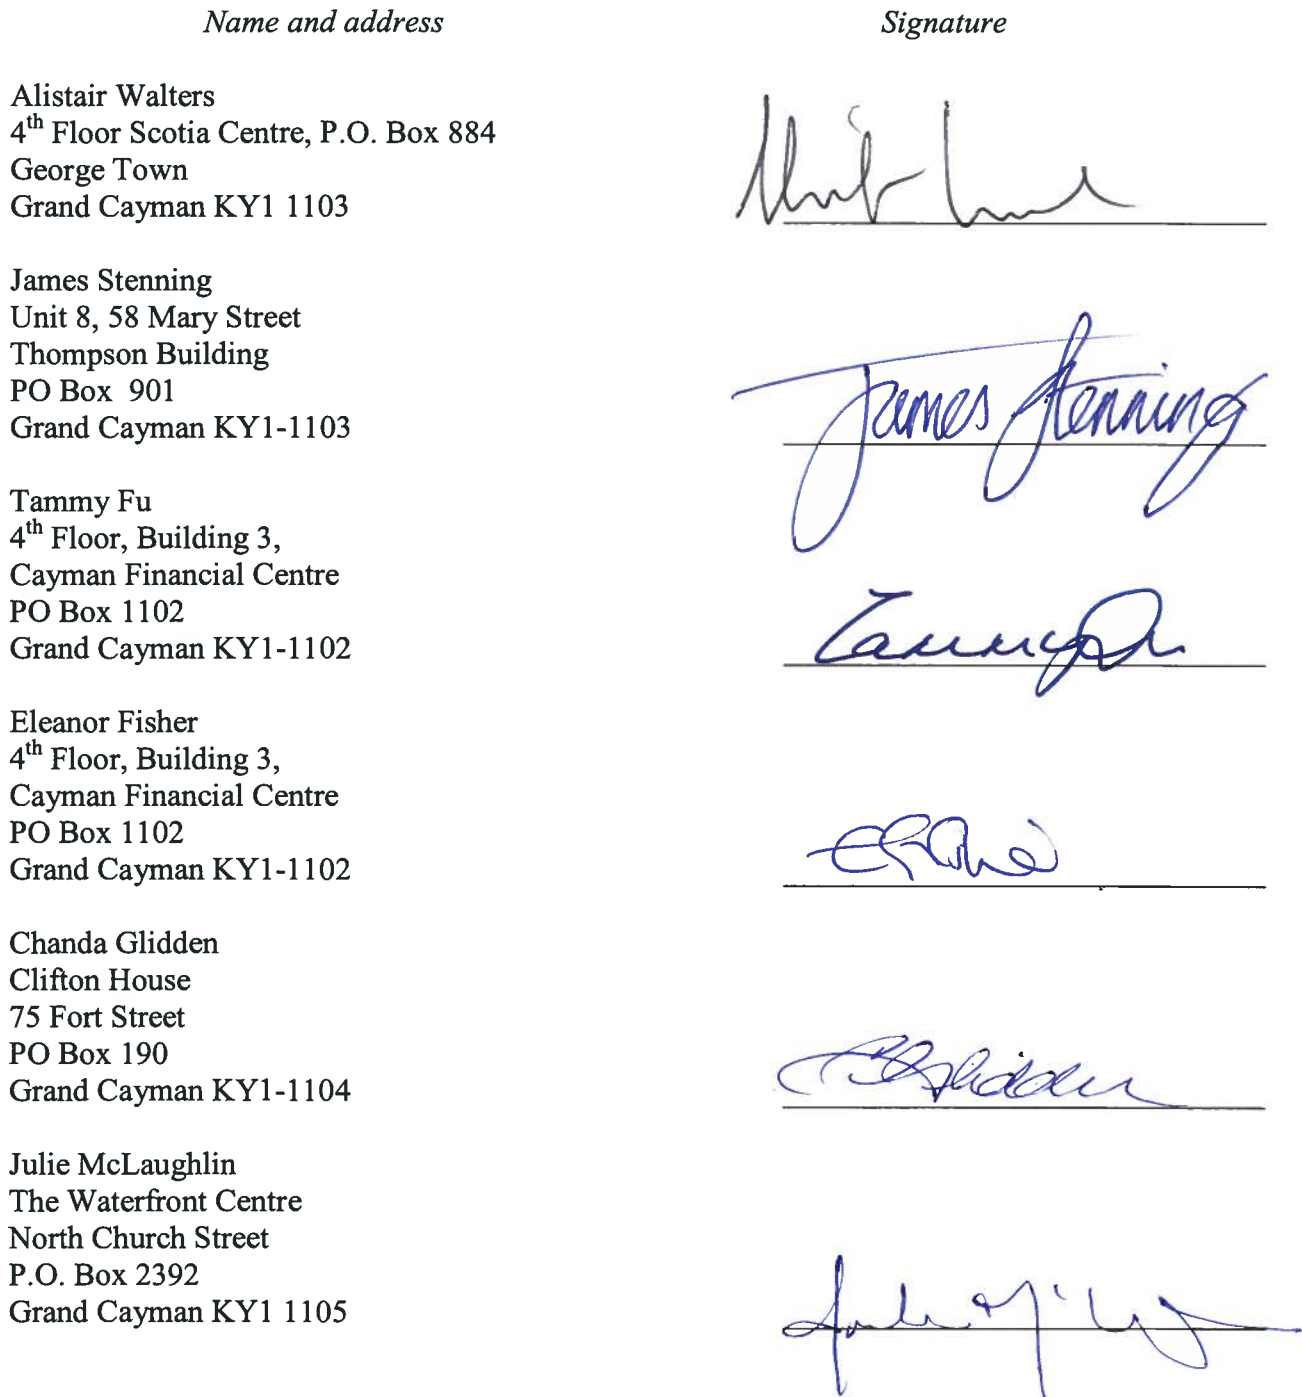 Name and address Signature
Alistair Walters
4th Floor Scotia Centre, P.O. Box 884
George Town
Grand Cayman KY1 1103
James Stenning
Unit 8, 58 Mary Street
Thompson Building
PO Box 901
Grand Cayman KY1-1103
James Stenning
Tammy Fu
4th Floor, Building 3,
Cayman Financial Centre
PO Box 1102
Grand Cayman KY1-1102
Eleanor Fisher
4th Floor, Building 3,
Cayman Financial Centre
PO Box 1102
Grand Cayman KY1-1102
Chanda Glidden
Clifton House
75 Fort Street
PO Box 190
Grand Cayman KY1-1104
Julie McLaughlin
The Waterfront Centre
North Church Street
P.O. Box 2392
Grand Cayman KY1 1105